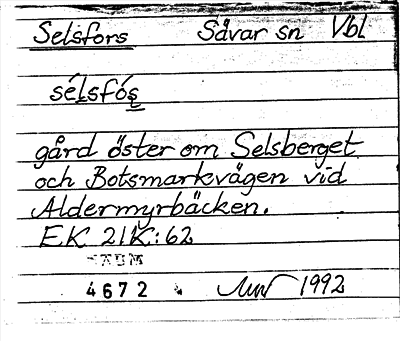 Selsfors Sävar sn Vbl
sélsfós
gård öster om Selsberget
och Botsmarkvägen vid
Åldermyrbäcken.
EK 21K:62
4672 1992